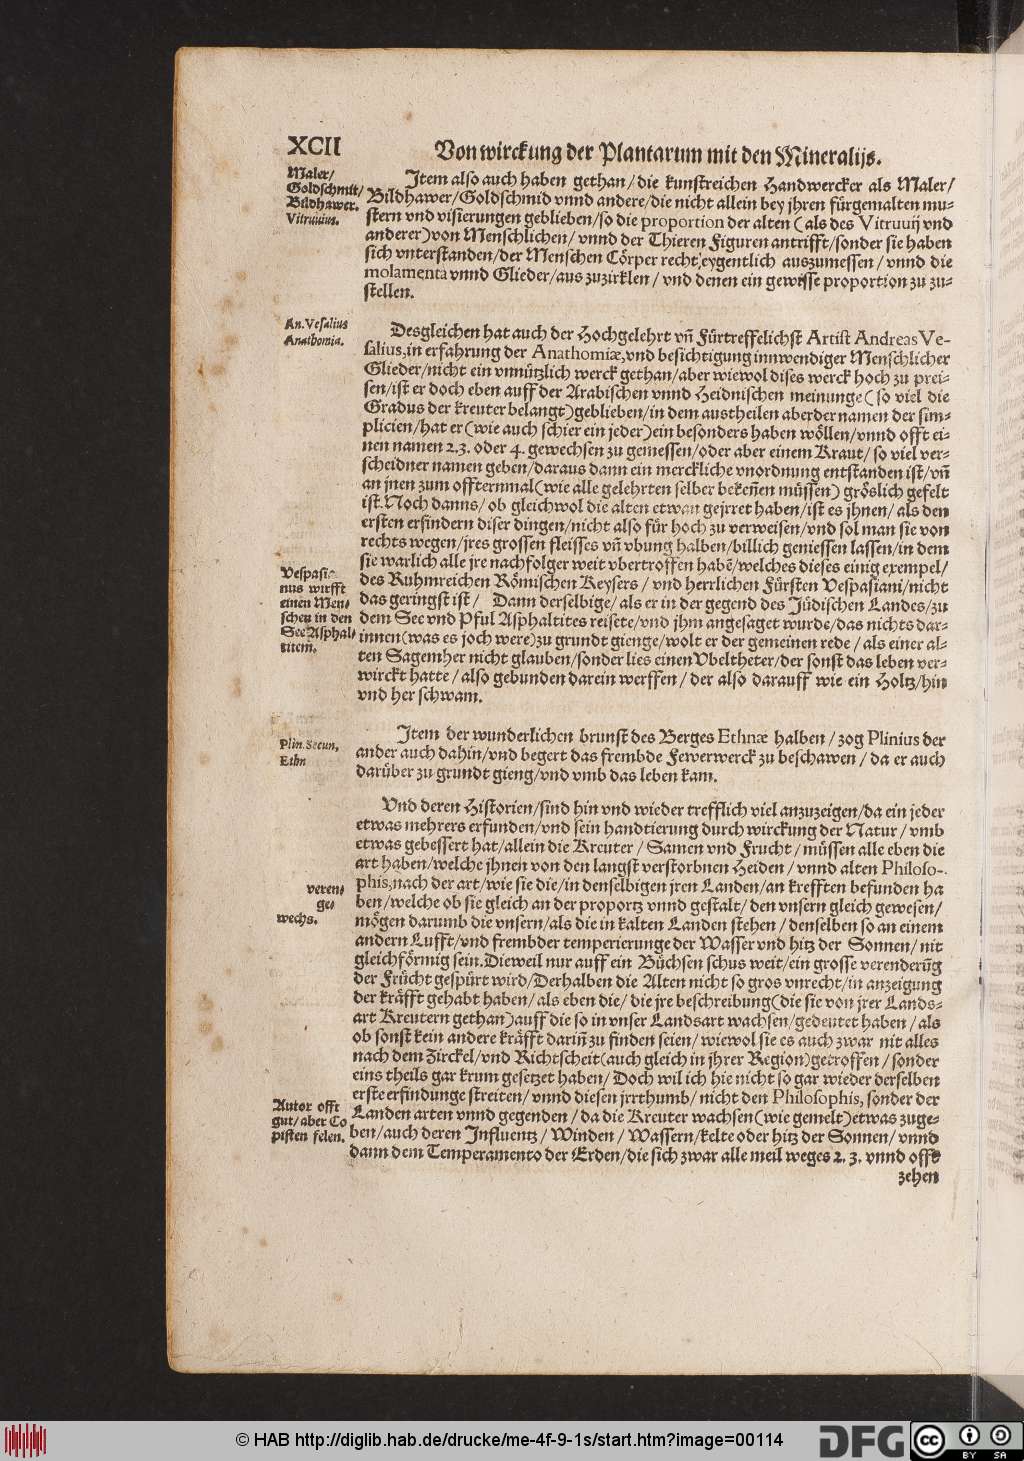 XCII
Von wirckung der Plantarum mit den Mineralijs.
Maler/
Goldschmit/
Bildhawer.
Vitruuius.
Item also auch haben gethan/die kunstreichen Handwercker als Maler/
Bildhawer/Goldschmid vnnd andere/die nicht allein bey jhren fürgemalten mu-
stern vnd visierungen geblieben/so die proportion der alten (als des Vitruuij vnd
anderer)von Menschlichen/vnnd der Thieren Figuren antrifft/sonder sie haben
sich vnterstanden/der Menschen Cörper recht eygentlich auszumessen/vnnd die
molamenta vnnd Glieder/aus zuzirklen/vnd denen ein gewisse proportion zu zu-
stellen.
An. Vesalius
Anathomia.
Desgleichen hat auch der Hochgelehrt vñ Fürtreffelichst Artist Andreas Ve-
salius,in erfahrung der Anathomiæ,vnd besichtigung innwendiger Menschlicher
Glieder/nicht ein vnnützlich werck gethan/aber wiewol dises werck hoch zu prei-
sen/ist er doch eben auff der Arabischen vnnd Heidnischen meinunge(so viel die
Gradus der kreuter belangt)geblieben/in dem austheilen aberder namen der sim-
plicien/hat er(wie auch schier ein jeder)ein besonders haben wöllen/vnnd offt ei-
nen namen 2.3. oder 4. gewechsen zu gemessen/oder aber einem Kraut/so viel ver-
scheidner namen geben/daraus dann ein merckliche vnordnung entstanden ist/vñ
an jnen zum offternmal(wie alle gelehrten selber bekeñen müssen) gröslich gefelt
ist. Noch danns/ob gleichwol die alten etwan gejrret haben/ist es jhnen/als den
ersten erfindern diser dingen/nicht also für hoch zu verweisen/vnd sol man sie von
rechts wegen/jres grossen fleisses vñ vbung halben/billich geniessen lassen/in dem
sie warlich alle jre nachfolger weit vbertroffen habẽ/welches dieses einig exempel/
des Ruhmreichen Römischen Keysers/vnd herrlichen Fürsten Vespasiani/nicht
das geringst ist/ Dann derselbige/als er in der gegend des Jüdischen Landes/zu
dem See vnd Pful Asphaltites reisete/vnd jhm angesaget wurde/das nichts dar-
innen(was es joch were)zu grundt gienge/wolt er der gemeinen rede/als einer al-
ten Sagemher nicht glauben/sonder lies einen Vbeltheter/der sonst das leben ver-
wirckt hatte/also gebunden darein werffen/der also darauff wie ein Holtz/hin
vnd her schwam.
Vespasi-
nus wirfft
einen Men-
schen in den
See Asphal-
titem.
Item der wunderlichen brunst des Berges Ethnæ halben/zog Plinius der
ander auch dahin/vnd begert das frembde Fewerwerck zu beschawen/da er auch
darüber zu grundt gieng/vnd vmb das leben kam.
Plin. Secun.
Ethn
Vnd deren Historien/sind hin vnd wieder trefflich viel anzuzeigen/da ein jeder
etwas mehrers erfunden/vnd sein handtierung durch wirckung der Natur/vmb
etwas gebessert hat/allein die Kreuter/Samen vnd Frucht/müssen alle eben die
art haben/welche jhnen von den langst verstorbnen Heiden/vnnd alten Philoso-
phis,nach der art/wie sie die/in denselbigen jren Landen/an krefften befunden ha
ben/welche ob sie gleich an der proportz vnnd gestalt/den vnsern gleich gewesen/
mögen darumb die vnsern/als die in kalten Landen stehen/denselben so an einem
andern Lufft/vnd frembder temperierunge der Wasser vnd hitz der Sonnen/nit
gleichförmig sein. Dieweil nur auff ein Büchsen schus weit/ein grosse verenderũg
der Frücht gespürt wird/Derhalben die Alten nicht so gros vnrecht/in anzeigung
der kräfft gehabt haben/als eben die/die jre beschreibung(die sie von jrer Lands-
art Kreutern gethan)auff die so in vnser Landsart wachsen/gedeutet haben/als
ob sonst kein andere kräfft dariñ zu finden seien/wiewol sie es auch zwar nit alles
nach dem Zirckel/vnd Richtscheit(auch gleich in jhrer Region)getroffen/sonder
eins theils gar krum gesetzet haben/Doch wil ich hie nicht so gar wieder derselben
erste erfindunge streiten/vnnd diesen jrrthumb/nicht den Philosophis, sonder der
Landen arten vnnd gegenden/da die Kreuter wachsen(wie gemelt)etwas zuge-
ben/auch deren Influentz/Winden/Wassern/kelte oder hitz der Sonnen/vnnd
dann dem Temperamento der Erden/die sich zwar alle meil weges 2. 3. vnnd offt
zehen
veren-
ge-
wechs.
Autor offt
gut/aber Co
pisten felen.
© HAB http://diglib.hab.de/drucke/me-4f-9-1s/start.htm?image=00114
DFG
cc
BY SA